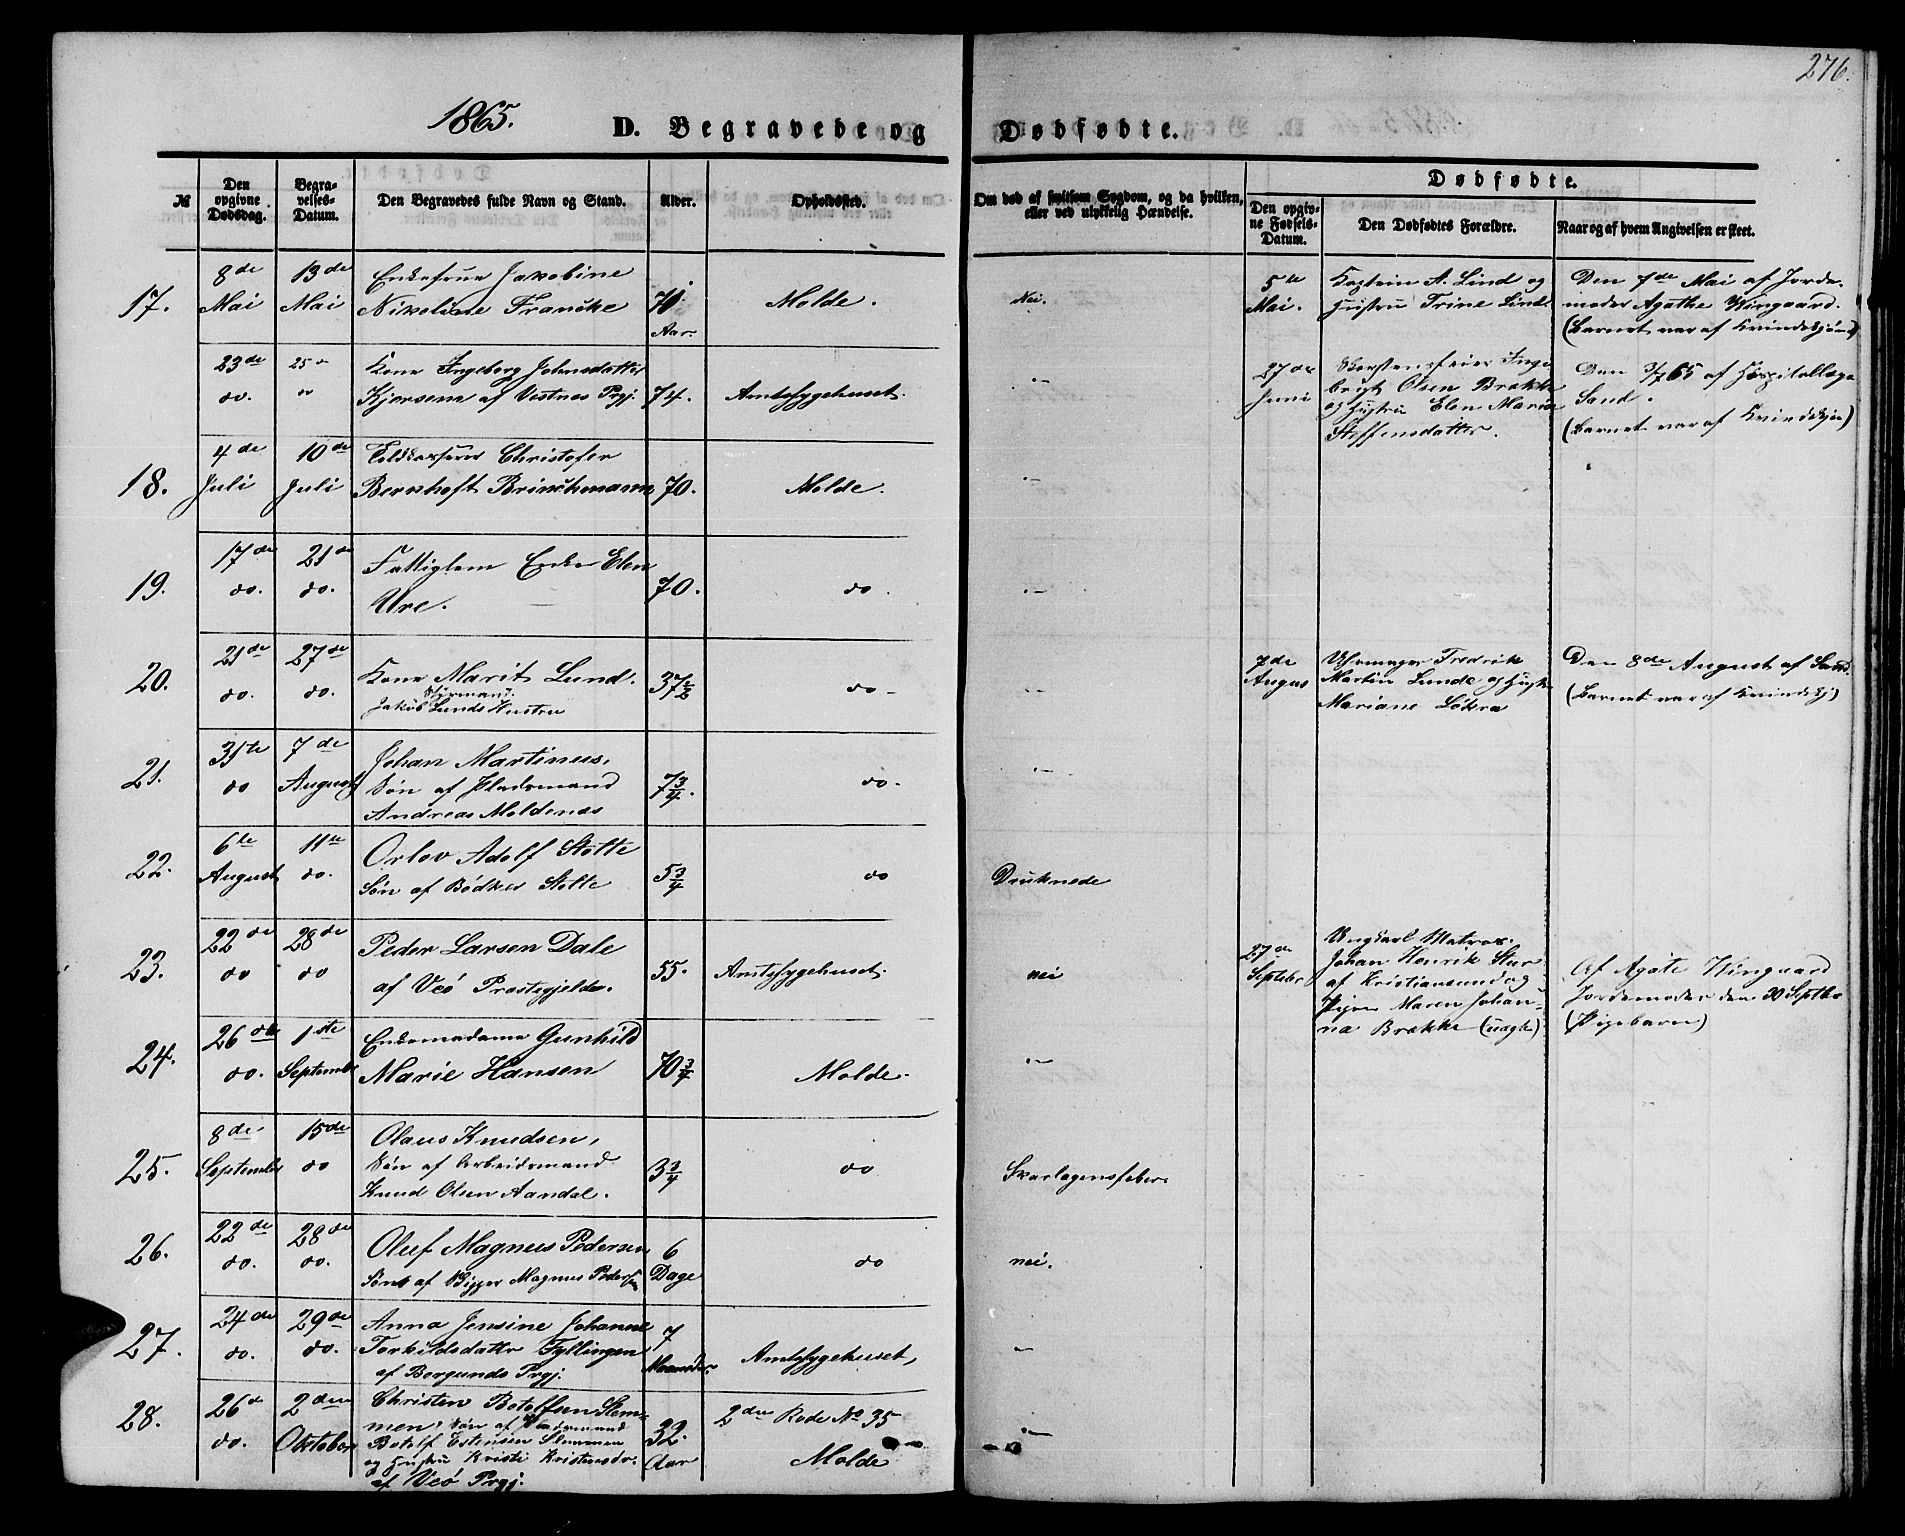 276.
1865. D. Begravede og Dødfødte.
№
Den opgivne Dødsdag.
Begravelses-Datum.
Den Begravedes fulde Navn og Stand.
Alder.
Opholdssted.
Om død af smitsom Sygdom, og da hvilken,
eller ved ulykkelig Hændelse.
Dødfødte.
Den opgivne Fødsels-Datum.
Den Dødfødtes Forældre.
Naar og af hvem Angivelsen er skeet.
17. 8de Mai 13de Mai
Enkefrue Jakobine
Nikoline Francke
70 Aar Molde. Nei.
5te Mai.
Kaptein A. Lind og
Hustru Trine Lind
Den 7de Mai af Jorde-
moder Agathe Wingaard.
(Barnet var af Kvindekjøn)
23de do. 25 do
Kone Ingeborg Johnsdatter
Kjersem af Vestnes Prgj.
74. Amtssygehuset. "
27de Juni
Skorstensfeier Inge-
brigt Olsen Brække
og Hustru Elen Marie
Steffensdatter.
Den 3/7 65 af Hospitallæge
Sand.
(Barnet var af Kvindekjøn)
18. 4de Juli 10de Juli
Christofer
Bernhoft Brinchmann
70. Molde. "
19. 17de do. 21de do.
Fattiglem Enke Elen
Ure.
70. do. "
20. 21de do. 27de do.
Kone Marit Lund.
Styrmand
Jakob Lunds Hustru
37½ do "
7de August
Uhrmager Fredrik
Martin Lunde og Hustr
Mariane Løkra
Den 8de August af Sand.
(Barnet var af Kvindekj)
21. 31te do 7de August
Johan Martinus,
Søn af Pladsmand
Andreas Moldenæs
7¾. do. "
22. 6te August 11te do.
Orlov Adolf Stolte
Søn af Bødker Stolte
5¾ do Druknede
23. 22de do 28de do
Peder Larsen Dale
af Veø Præstegjeld.
55. Amtssygehuset. nei
27de Septebr
Ungkarl Matros.
Johan Henrik Stur-
af Kristiansund og
Pigen Maren Johan-
na Brække (uægte)
Af Agate Wingaard
Jordemoder den 30 Septbr
(Pigebarn)
24. 26de do. 1ste Septembr
Enkemadame Gunhild
Marie Hansen
70¾ Molde. "
25. 8de September 15de do
Olaus Knudsen,
Søn af Arbeidsmand
Knud Olsen Aandal.
3¾ do Skarlagensfeber.
26. 22de do. 28de do.
Oluf Magnus Pedersen
Søn af Magnus Pedersen
6 Dage do nei.
27. 24de do. 29de do.
Anna Jensine Johanne
Torkildsdatter Fyllingen
af Borgunds Prgj.
7 Maaneder. Amtssygehuset, "
28. 26de do. 2den Oktober
Christen Botolfsen Slem-
men, Søn af
Botolf Estensen Slemmen
og Hustru Kristi Kristensdr.
af Veø Prgj.
32. Aar 2den Rode No 35
Molde "